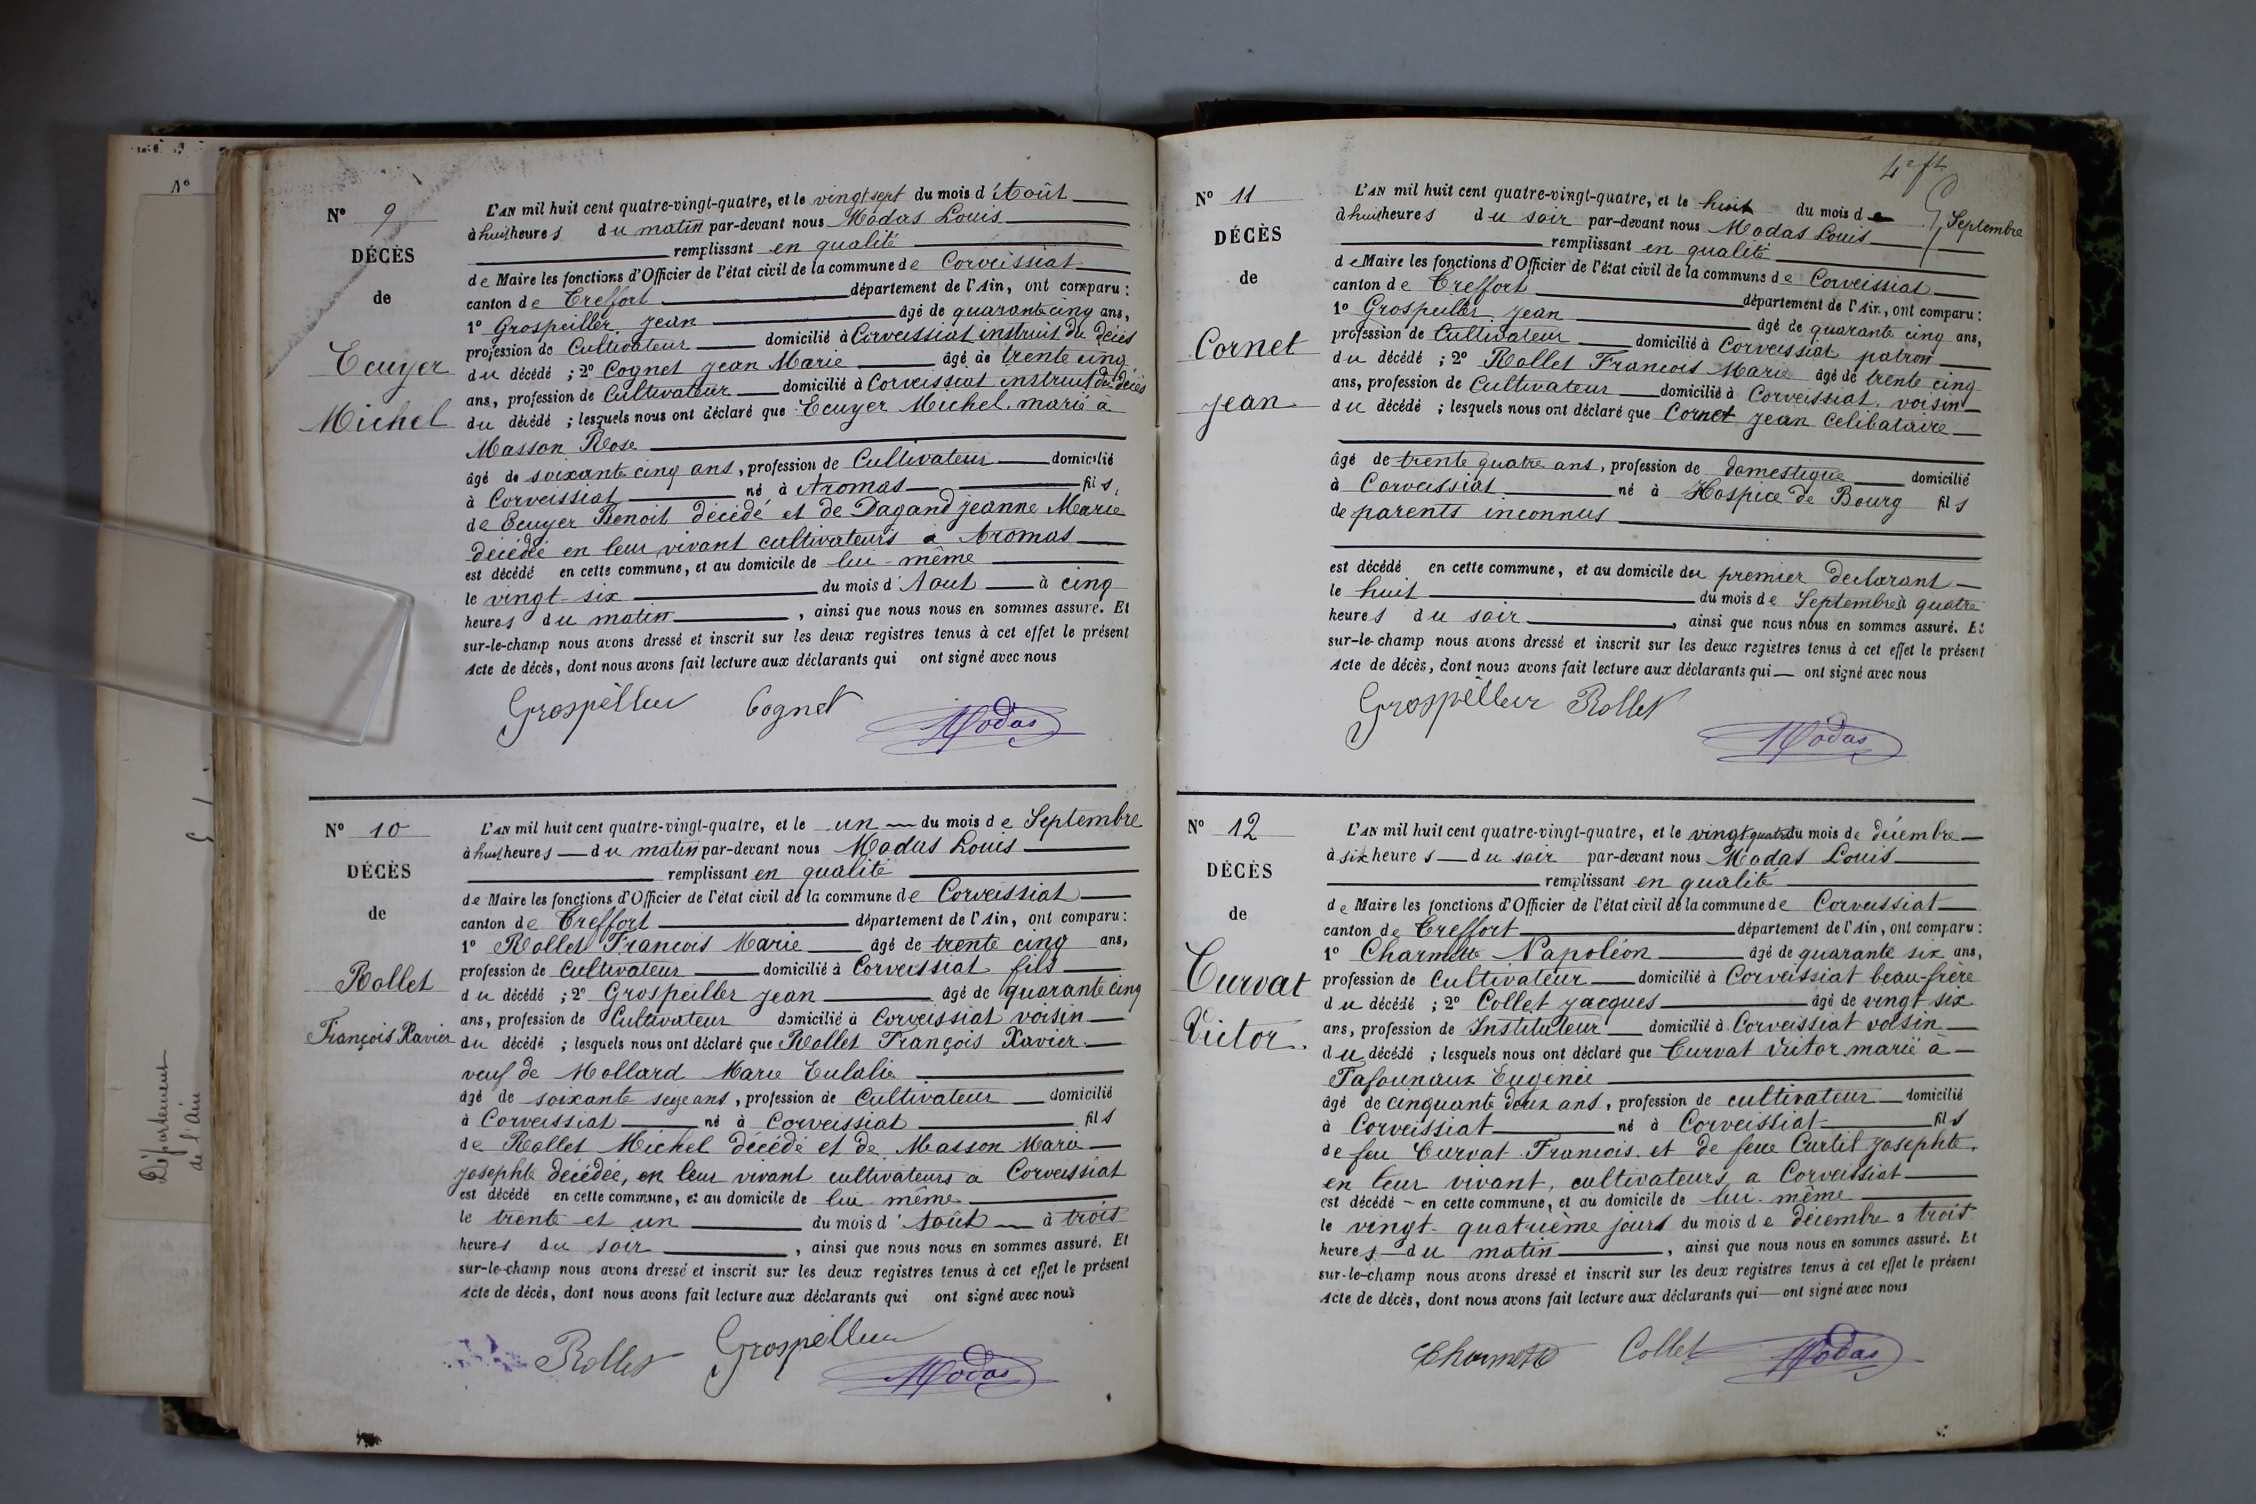 Nº 9
DÉCÈS
de
Ecuyer
Michel
L'AN mil huit cent quatre-vingt-quatre, et le vingt sept du mois d'Août
à huit heures du matin par-devant nous Modas Louis
remplissant en qualité
de Maire les fonctions d'Officier de l'état civil de la commune de Corveissiat
canton de Treffort département de l'Ain, ont comparu :
1º Grospeiller Jean âgé de quarante cinq ans,
profession de Cultivateur domicilié à Corveissiat instruit du décès
du décédé ; 2º Cognet Jean Marie âgé de trente cinq
ans, profession de Cultivateur domicilié à Corveissiat instruit du décès
du décédé ; lesquels nous ont déclaré que Ecuyer Michel marié à
Masson Rose
âgé de soixante cinq ans, profession de Cultivateur domicilié
à Corveissiat né à Aromas fils
de Ecuyer Benoit décédé et de Dagand Jeanne Marie
décédée en leur vivant cultivateurs a Aromas
est décédé en cette commune, et au domicile de lui-même
le vingt-six du mois d'Aout à cinq
heures du matin, ainsi que nous nous en sommes assuré. Et
sur-le-champ nous avons dressé et inscrit sur les deux registres tenus à cet effet le présent
Acte de décès, dont nous avons fait lecture aux déclarants qui ont signé avec nous
Grospelleur Cognet Modas
Nº 10
DÉCÈS
de
Rollet
François Xavier
L'AN mil huit cent quatre-vingt-quatre, et le un du mois de Septembre
à huit heures du matin par-devant nous Modas Louis
remplissant en qualité
de Maire les fonctions d'Officier de l'état civil de la commune de Corveissiat
canton de Treffort département de l'Ain, ont comparu :
1º Rollet Francois Marie âgé de trente cinq ans,
profession de Cultivateur domicilié à Corveissiat fils
du décédé ; 2º Grospeiller Jean âgé de quarante cinq
ans, profession de Cultivateur domicilié à Corveissiat voisin
du décédé ; lesquels nous ont déclaré que Rollet François Xavier
veuf de Mollard Marie Eulalie
âgé de soixante seize ans, profession de Cultivateur domicilié
à Corveissiat né à Corveissiat fils
de Rollet Michel décédé et de Masson Marie
Josephte décédée, en leur vivant cultivateurs a Corveissiat
est décédé en cette commune, et au domicile de lui-même
le trente et un du mois d'Août à trois
heures du soir, ainsi que nous nous en sommes assuré. Et
sur-le-champ nous avons dressé et inscrit sur les deux registres tenus à cet effet le présent
Acte de décès, dont nous avons fait lecture aux déclarants qui ont signé avec nous
Rollet Grospelleur Modas
Département
de l'ain
4e ft
Nº 11
DÉCÈS
de
Cornet
Jean
L'AN mil huit cent quatre-vingt-quatre, et le huit du mois de Septembre
à huit heures du soir par-devant nous Modas Louis
remplissant en qualité
de Maire les fonctions d'Officier de l'état civil de la commune de Corveissiat
canton de Treffort département de l'Ain, ont comparu :
1º Grospeiller Jean âgé de quarante cinq ans,
profession de Cultivateur domicilié à Corveissiat patron
du décédé ; 2º Rollet Francois Marie âgé de trente cinq
ans, profession de Cultivateur domicilié à Corveissiat voisin
du décédé ; lesquels nous ont déclaré que Cornet Jean Celibataire
âgé de trente quatre ans, profession de domestique domicilié
à Corveissiat né à Hospice de Bourg fils
de parents inconnus
est décédé en cette commune, et au domicile du premier declarant
le huit du mois de Septembre à quatre
heures du soir, ainsi que nous nous en sommes assuré. Et
sur-le-champ nous avons dressé et inscrit sur les deux registres tenus à cet effet le présent
Acte de décès, dont nous avons fait lecture aux déclarants qui ont signé avec nous
Grospelleur Rollet
Modas
Nº 12
DÉCÈS
de
Curvat
Victor.
L'AN mil huit cent quatre-vingt-quatre, et le vingt-quatre du mois de décembre
à six heures du soir par-devant nous Modas Louis
remplissant en qualité
de Maire les fonctions d'Officier de l'état civil de la commune de Corveissiat
canton de Treffort département de l'Ain, ont comparu :
1º Charmette Napoléon âgé de quarante six ans,
profession de Cultivateur domicilié à Corveissiat beau-frère
du décédé ; 2º Collet Jacques âgé de vingt six
ans, profession de Instituteur domicilié à Corveissiat voisin
du décédé ; lesquels nous ont déclaré que Curvat Victor marié à
Tafournaux Eugénie
âgé de cinquante deux ans, profession de cultivateur domicilié
à Corveissiat né à Corveissiat fils
de feu Curvat Francois et de feue Curtil Josephte,
en leur vivant, cultivateurs a Corveissiat
est décédé en cette commune, et au domicile de lui-même
le vingt-quatrième jours du mois de décembre a trois
heures du matin, ainsi que nous nous en sommes assuré. Et
sur-le-champ nous avons dressé et inscrit sur les deux registres tenus à cet effet le présent
Acte de décès, dont nous avons fait lecture aux déclarants qui ont signé avec nous
Charmette Collet Modas